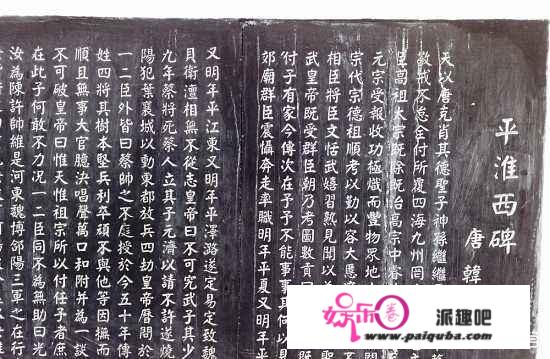 平淮西碑
唐 韓
天以唐克肖其德聖子神孫繼繼
敬戒不怠全付所覆四海九州罔
臣高祖太宗既除既治高宗中睿
元宗受報收功極熾而豐物眾地
宗代宗德祖順考以勤以容大慝適
相臣將臣文恬武嬉習熟見聞以為
武皇帝既受群臣朝乃考圖數貢曰
付予有家今傳次在予予不能事事其何以
郊廟群臣震懾奔走率職明年平夏又明年平
又明年平江東又明年平澤潞遂定易定致魏
貝衛澶相無不從志皇帝曰不可究武予其少
九年蔡將死蔡人立其子元濟以請不許遂燒
陽犯葉襄城以動東都放兵四劫皇帝歷問於
一二臣外皆曰蔡帥之不庭授於今五十年傳
姓四將其樹本堅兵利卒頑不與他等因撫而
順且無事大官臆決唱聲萬口和附并為一談
不可破皇帝曰惟天惟祖宗所以付任予者庶
在此予何敢不力況一二臣同不為無助曰光
汝為陳許帥維是河東魏博郃陽三軍之在行
娱乐圈
派趣吧
www.paiquba.com